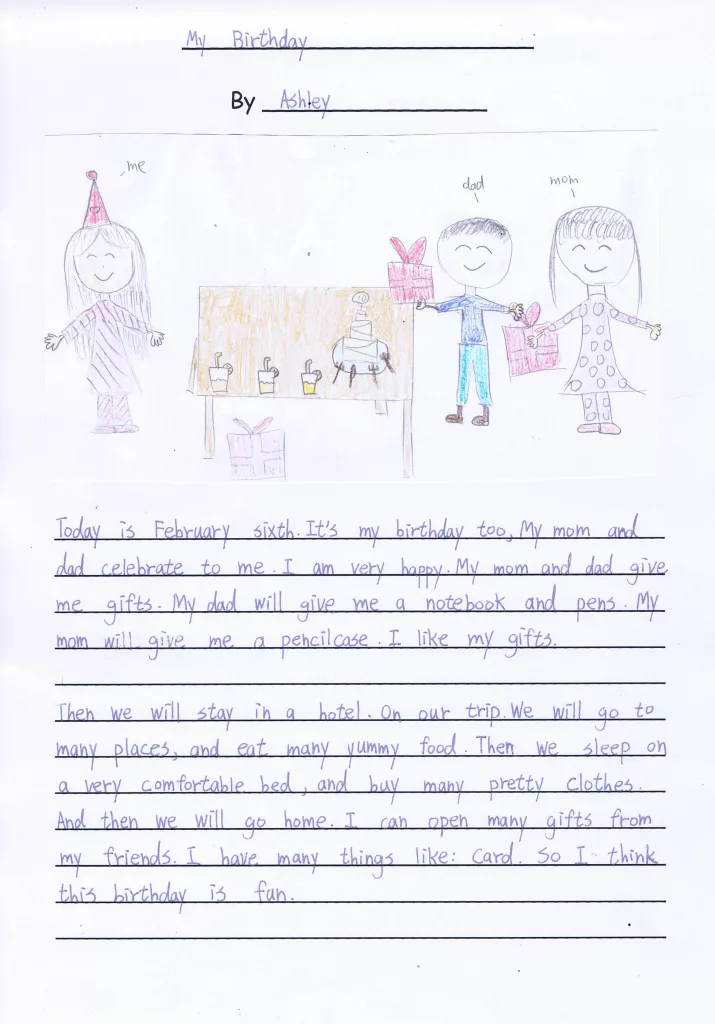 My Birthday
By Ashley
me
dad
mom
Today is February sixth. It's my birthday too, My mom and
dad celebrate to me. I am very happy. My mom and dad give
me gifts. My dad will give me a notebook and pens. My
mom will give me a pencilcase. I like my gifts.
Then we will stay in a hotel. On our trip. We will go to
many places, and eat many yummy food. Then we sleep on
a very comfortable bed, and buy many pretty clothes.
And then we will go home. I can open many gifts from
my friends. I have many things like: Card. So I think
this birthday is fun.